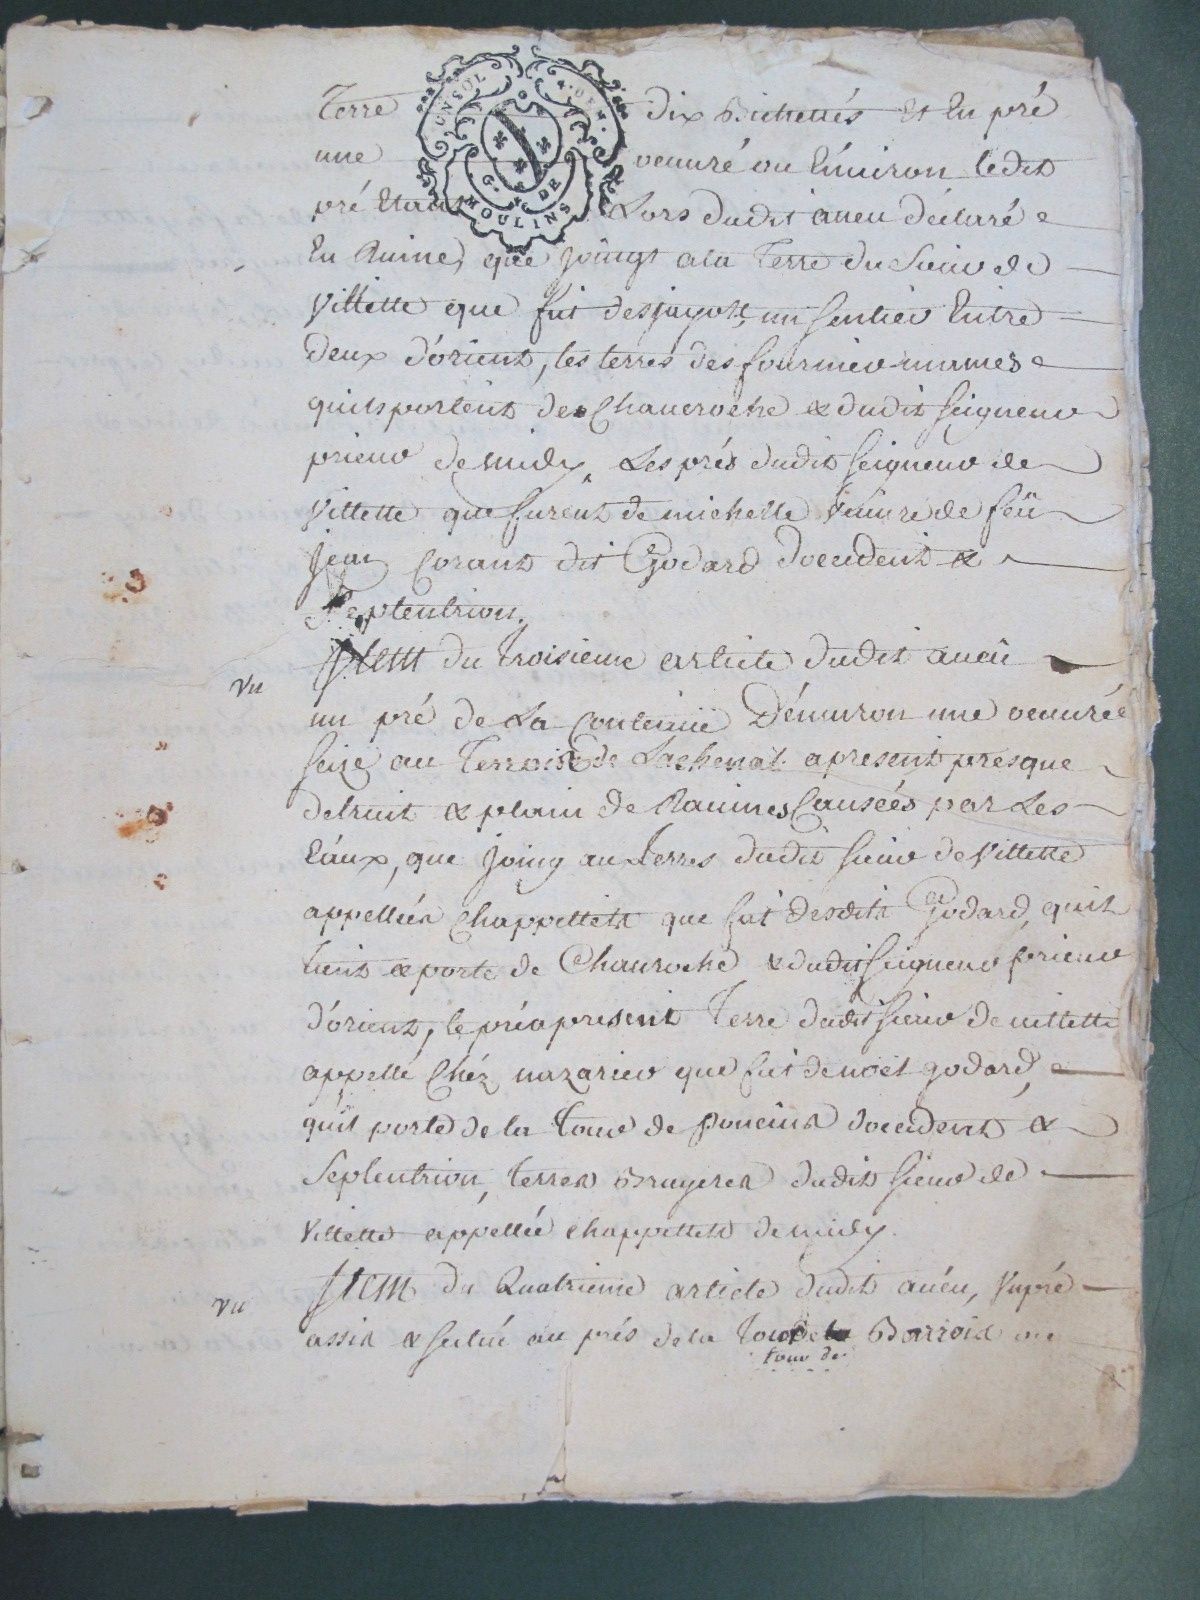 UN SOL 4. DEN.
G. DE
MOULINS
Terre dix Bichettés Et En pré
une oeuuré ou Enuiron ledit
pré Etant Lors dudit aueu déclaré
En Ruine, que joingt a la Terre du Sieur de
Villette que fut des jayolt, un sentier Entre
deux d'orient, les terres des fournier mornes
quils portent de Chaucroche & dudit seigneur
prieur de midy, Les prés dudit seigneur de
Villette que furent de michelle Veuure de feü
jean Corant dit Godard d'occident &
Septentrion.
vu
Item du Troisieme article dudit aueü
un pré de La Contenüe D'enuiron une oeuurée
seize au Terroir de Lachenal apresent presque
detruit & plain de Rauines Causées par Les
Eaux, que joing au Terres dudit sieur de Villette
appellées Chappettes que fut desdits Godard, quil
tient & porte de Chauroche & dudit seigneur prieur
d'orient, le pré apresent Terre dudit sieur de villette
appellé Chéz nazarier que fut de noel godard,
quil porte de la Tour de poncins d'occident &
Septentrion, terres Bruyeres dudit sieur de
Villette appellée chappettes de midy.
vu
Item du Quatrieme article dudit aueu, Vn pré
assis & scitué au prés de la Tour de la Barrois
tour de